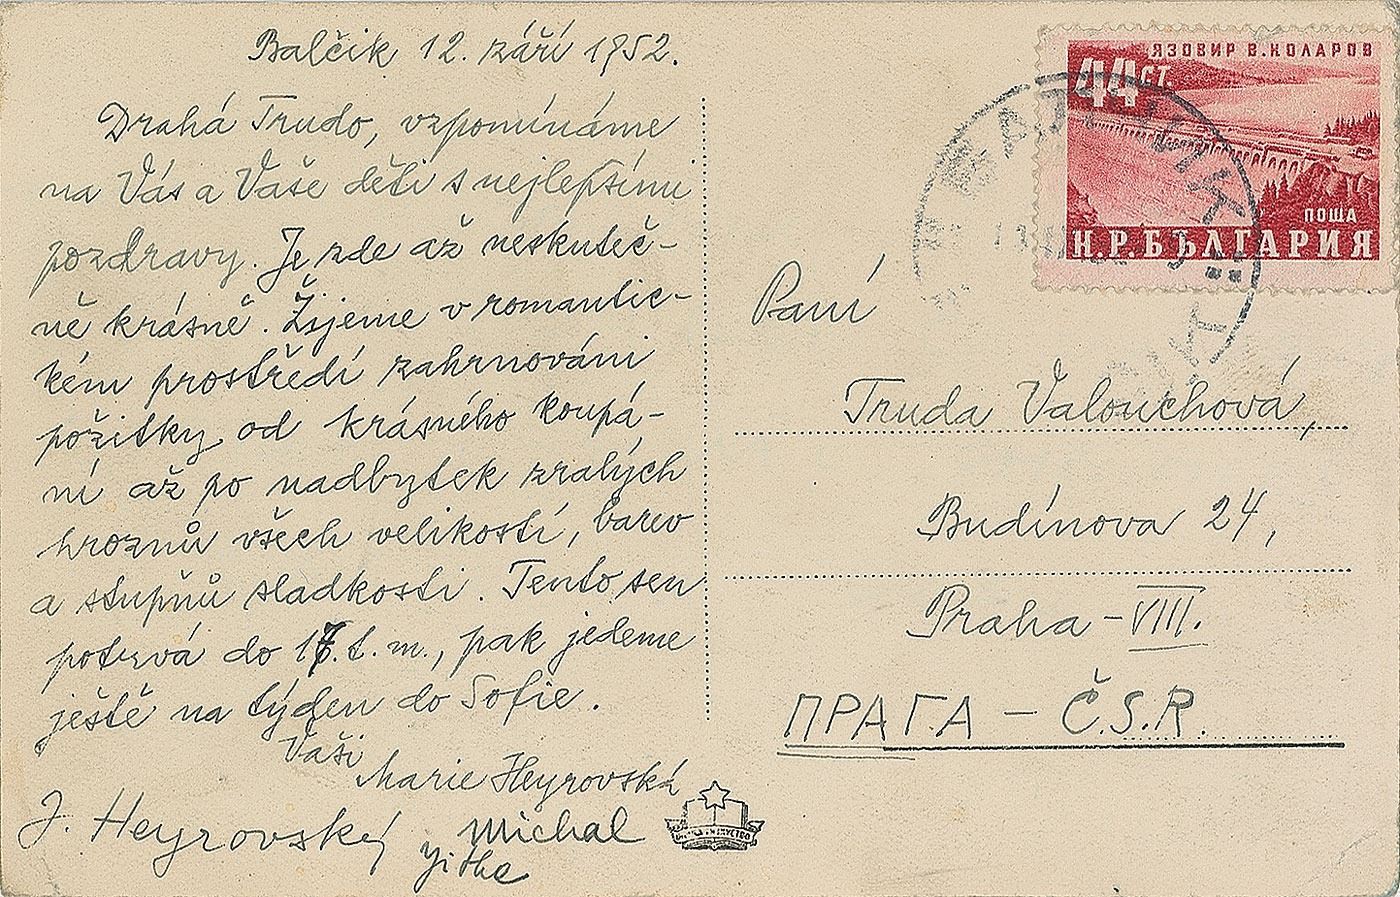 Balčik 12. září 1952.
Drahá Trudo, vzpomínáme
na Vás a Vaše děti s nejlepšími
pozdravy. Je zde až neskuteč-
ně krásně. Žijeme v romantic-
kém prostředí zahrnováni
požitky od krásného koupá-
ní až po nadbytek zralých
hroznů všech velikostí, barev
a stupňů sladkosti. Tento sen
potrvá do 17. t. m., pak jedeme
ještě na týden do Sofie.
Vaši
Marie Heyrovská
J. Heyrovský
Michal
Jitka
ЯЗОВИР В. КОЛАРОВ
44 СТ.
ПОЩА
Н.Р.БЪЛГАРИЯ
Paní
Truda Valouchová,
Budínova 24,
Praha - VIII.
ПРАГА - Č.S.R.